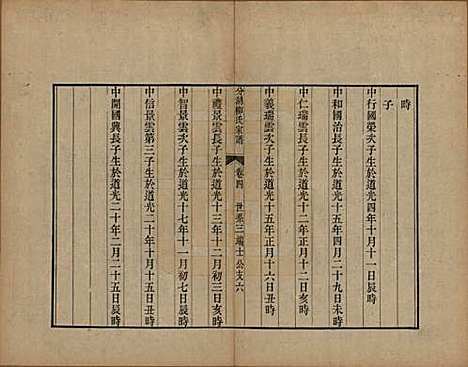 時
子
中行國榮次子生於道光四年十月十一日辰時
中和國治長子生於道光十五年四月二十九日未時
中仁瑞雲長子生於道光十二年正月十二日亥時
中義瑞雲次子生於道光十五年正月十六日丑時
分湖柳氏家譜 卷四 世系三瑞士公支六
中禮景雲長子生於道光十三年十二月初三日亥時
中智景雲次子生於道光十七年十一月初七日辰時
中信景雲第三子生於道光二十年十月十五日丑時
中開國興長子生於道光二十年二月二十五日辰時